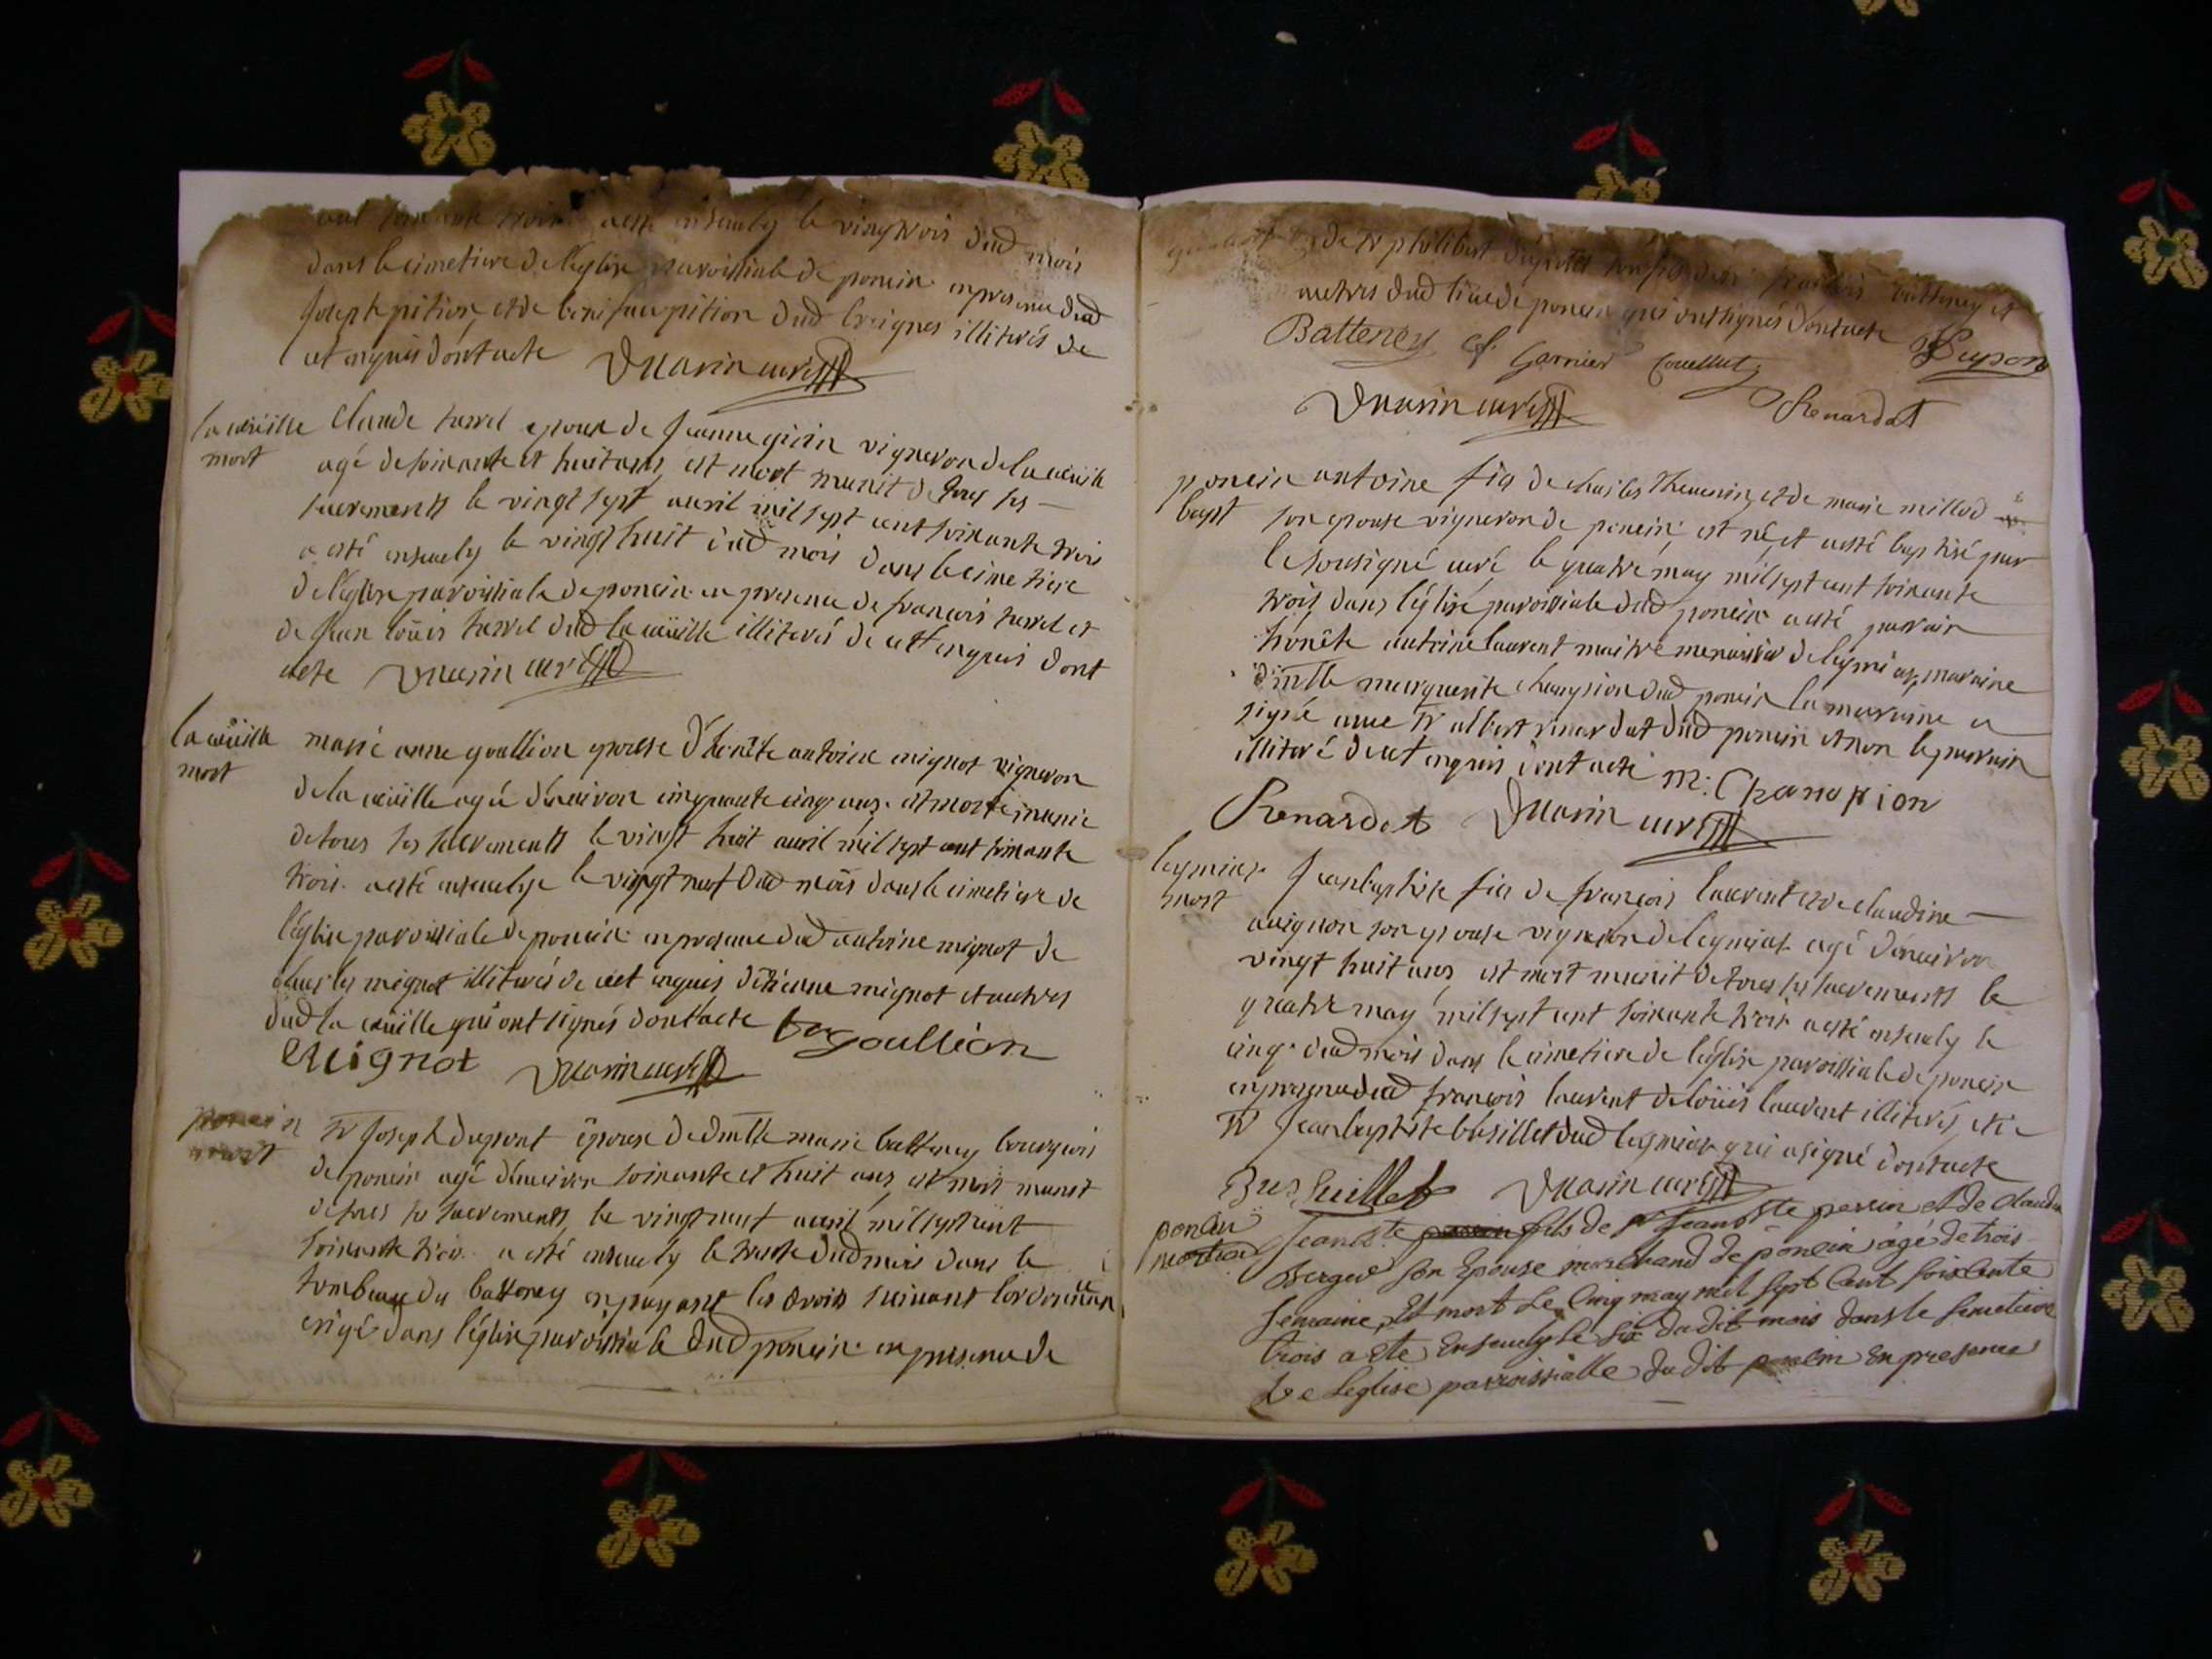 cent soixante trois a esté ensevely le vingt trois dud mois
dans le cimetiere de l'eglise parroissiale de poncin en presence dud
Joseph pition, et de boniface pition dud breignes illiterés de
cet enquis dont acte Dumarin curé
la cuëille Claude tarrel epoux de Jeanne girin vigneron de la cuëille
mort agé de soixante et huit ans, est mort munit de tous ses
sacrements le vingt sept avril mil sept cent soixante trois
a esté ensevely le vingt huit dud mois dans le cimetiere
de l'eglise parroissiale de poncin en presence de francois tarrel et
de Jean loüis tarrel dud la cuëille illiterés de cet enquis dont
acte Dumarin curé
la cuëille marie anne goullion epouse d'honête antoine mignot vigneron
mort de la cuëille agée d'environ cinquante cinq ans est morte munie
de tous ses sacrements le vingt huit avril mil sept cent soixante
trois a esté ensevelye le vingt neuf dud mois dans le cimetiere de
l'église parroissiale de poncin en presence dud antoine mignot de
charles mignot illiterés de cet enquis d'etienne mignot et autres
dud la cuëille qui ont signés dont acte goullion
Mignot Dumarin curé
poncin Sr Joseph dupont epoux de dmlle marie batteney bourgeois
mort de poncin agé d'environ soixante et huit ans, est mort munit
de tous ses sacrements, le vingt neuf avril mil sept cent
soixante trois a esté ensevely le trente dud mois dans le
tombeau du batteney en payant les droits suivant l'ordonnance
erigé dans l'église parroissiale dud poncin en presence de
de Sr philibert batteney et
autres dud lieu de poncin qui ont signés dont acte Dupont
Batteney Garnier Couellut
Dumarin curé Renardat
poncin antoine fils de charles Thevenin, et de marie millod
bapt son epouse vigneron de poncin, est né, et a esté baptisé par
le sousigné curé le quatre may mil sept cent soixante
trois dans l'église parroissiale dud poncin a esté parrain
honête antoine laurent maitre menuisier de leymiat, marraine
dmlle marguerite champion dud poncin la marraine a
signé avec Sr albert renardat dud poncin et non le parrain
illiteré de cet enquis dont acte M: Champion
Renardat Dumarin curé
leymiat Jean baptiste fils de françois laurent et de claudine
mort avignon son epouse vigneron de leymiat agé d'environ
vingt huit ans, est mort munit de tous ses sacrements le
quatre may mil sept cent soixante trois a esté ensevely le
cinq dud mois dans le cimetiere de l'église parroissiale de poncin
en presence dud francois laurent de loüis laurent illiterés, et de
Sr Jean baptiste busillet dud leymiat qui a signé dont acte
Bussuillet Dumarin curé
poncin Jean Bte fils de Sr Jean Bte perrin et de claudine
mortuaire Berger son Epouse marchand de poncin, agé de trois
semaine, Est mort Le Cinq may mil sept Cent soixante
trois a ete Ensevely le six du dit mois dans le semetiere
de L'eglise parroissialle du dit poncin En presence